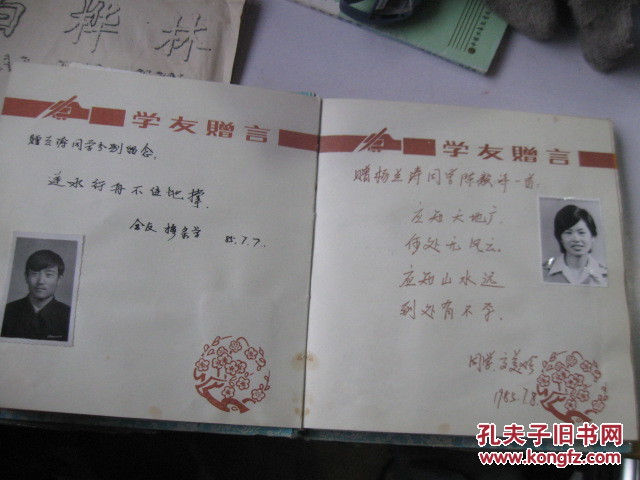 白桦林
学友赠言
赠兰涛同学分别留念.
逆水行舟不住地撑.
学友 85.7.7.
学友赠言
赠杨兰涛同学陈毅平一首.
应知天地广,
何处无风云.
应知山水远
到处有不平.
同学
1985.7.8
孔夫子旧书网
www.kongfz.com